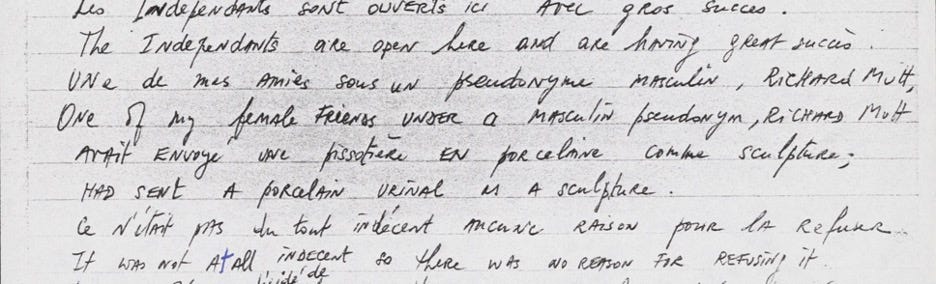 Les Indépendants sont ouverts ici avec gros succès.
The Independants are open here and are having great succès.
Une de mes amies sous un pseudonyme masculin, Richard Mutt,
One of my female friends under a masculin pseudonym, Richard Mutt
avait envoyé une pissotière en porcelaine comme sculpture;
had sent a porcelain urinal as a sculpture.
Ce n'était pas du tout indécent aucune raison pour la refuser.
It was not at all indecent so there was no reason for refusing it.